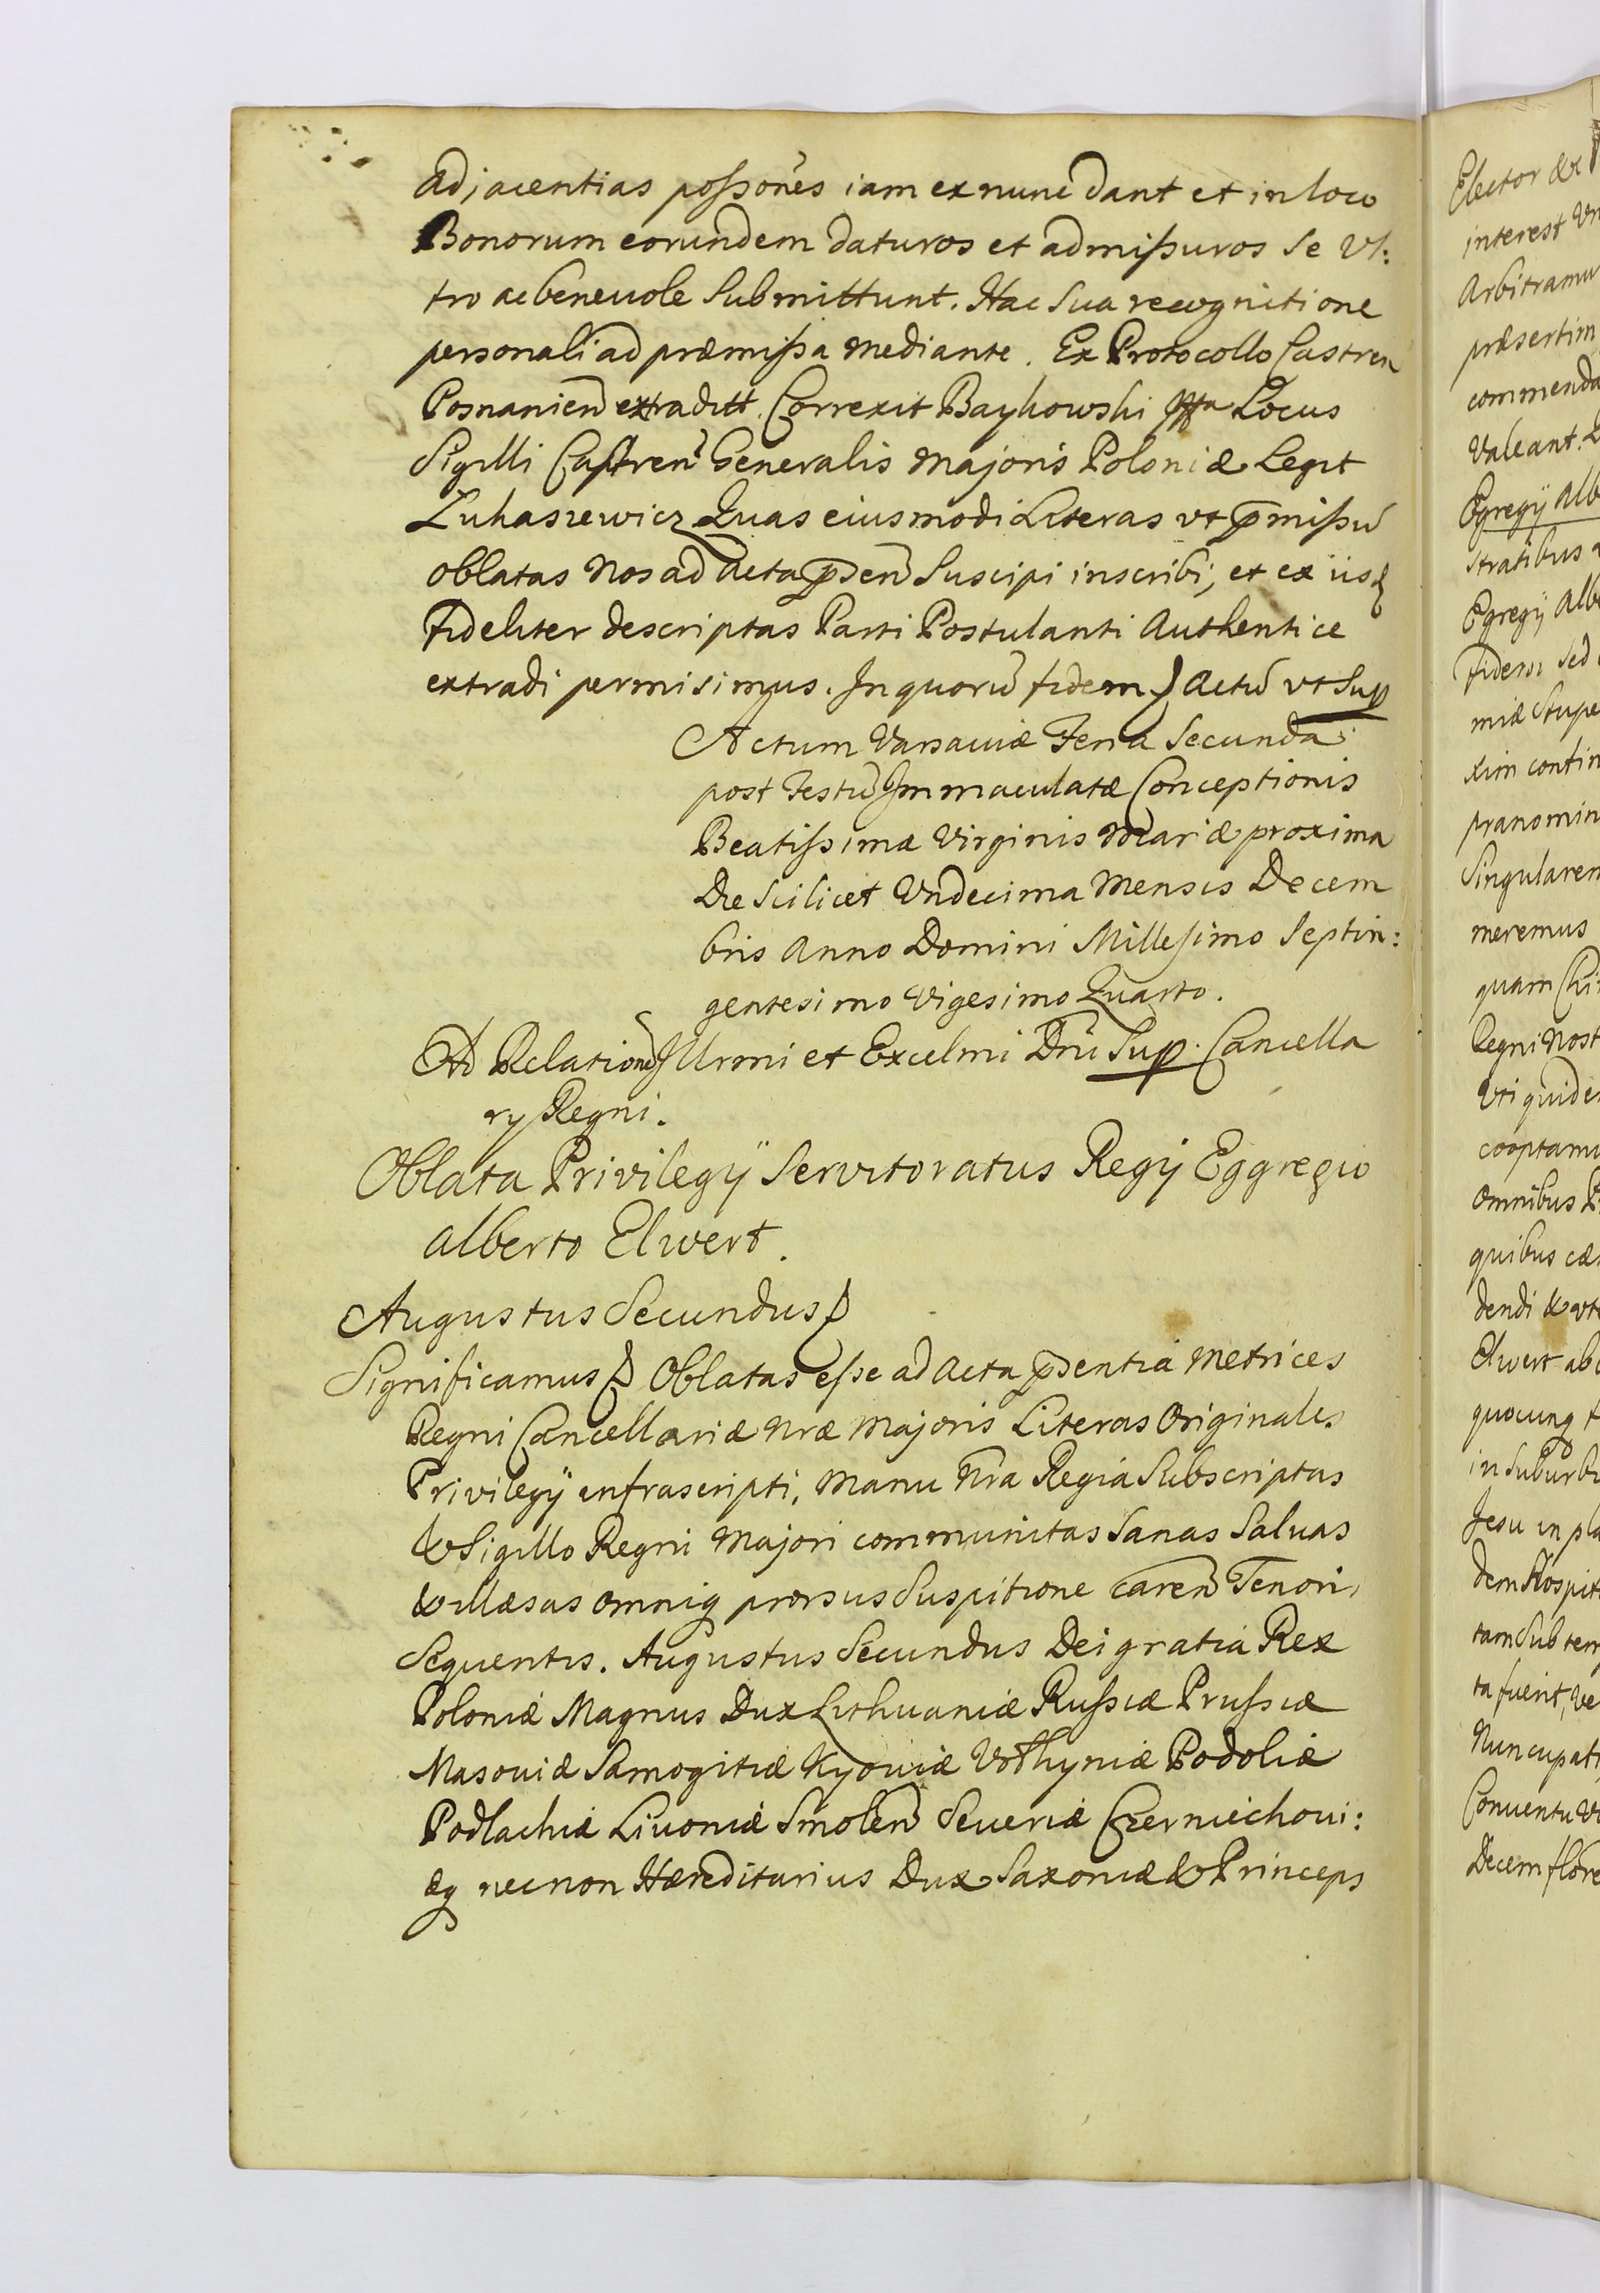 adjacentias posſsoñes iam ex nunc dant et in loco
Bonorum eorundem daturos et admiſsuros se Vl:
tro ac beneuole Submittunt. Hac Sua recognitione
personali ad præmiſsa mediante. Ex Protocollo Castren
Posnanien extraditt Correxit Baykowski Locus
Sigilli Caſtren Generalis Majoris Poloniæ Legit
Lukasiewicz Quas eiusmodi Literas vt p̄miſsũ
oblatas Nos ad Acta p̄sen Suscipi inscribi, et ex iisd
Fideliter descriptas Parti Postulanti Authentice
extradi permisimus. In quorũ fidem Actũ vt Sup
Actum Varsauiæ Feria Secunda
post Festũ Immaculatæ Conceptionis
Beatiſsimæ Virginis Mariæ proxima
Die Scilicet Vndecima Mensis Decem
bris Anno Domini Milleſimo Septin:
gentesimo Vigesimo Quarto.
Ad Relationem Illrmi et Excelmi Dni Sup. Cancella
ry Regni.
Oblata Privilegÿ Servitoratus Regÿ Eggregio
Alberto Elwert.
Augustus Secundus
Significamus Oblatas eſse ad Acta p̄sentia Metrices
Regni Cancellariæ Nræ Majoris Literas Originales
Privilegÿ infrascripti, Manu Nra Regia Subscriptas
& Sigillo Regni Majori communitas Sanas Saluas
& illæsas omniq prorsus Suspitione caren Tenori
Sequentis. Augustus Secundus Dei gratia Rex
Poloniæ Magnus Dux Lithuaniæ Ruſsiæ Pruſsiæ
Masouiæ Samogitiæ Kyouiæ Volhyniæ Podoliæ
Podlachiæ Liuoniæ Smolen Seueriæ Czerniechoui:
æq necnon Hæreditarius Dux Saxoniæ & Princeps
Elector &
interest Vn
Arbitramu
præsertim
commenda
Valeant.
Egregÿ Alb
stratibus
Egregÿ Alb
Fidem Sed
miæ Stupe
xim contin
prænomin
Singularem
meremus
quam Chi
Regni Nost
Vti quide
cooptamu
omnibus P
quibus cæ
dendi & vt
Elwert ab
quocunq
in Suburb
Jesu in pla
dem Hospit
tam Sub tem
ta fuerit, ve
Nuncupat
Conuentu
Decem flore